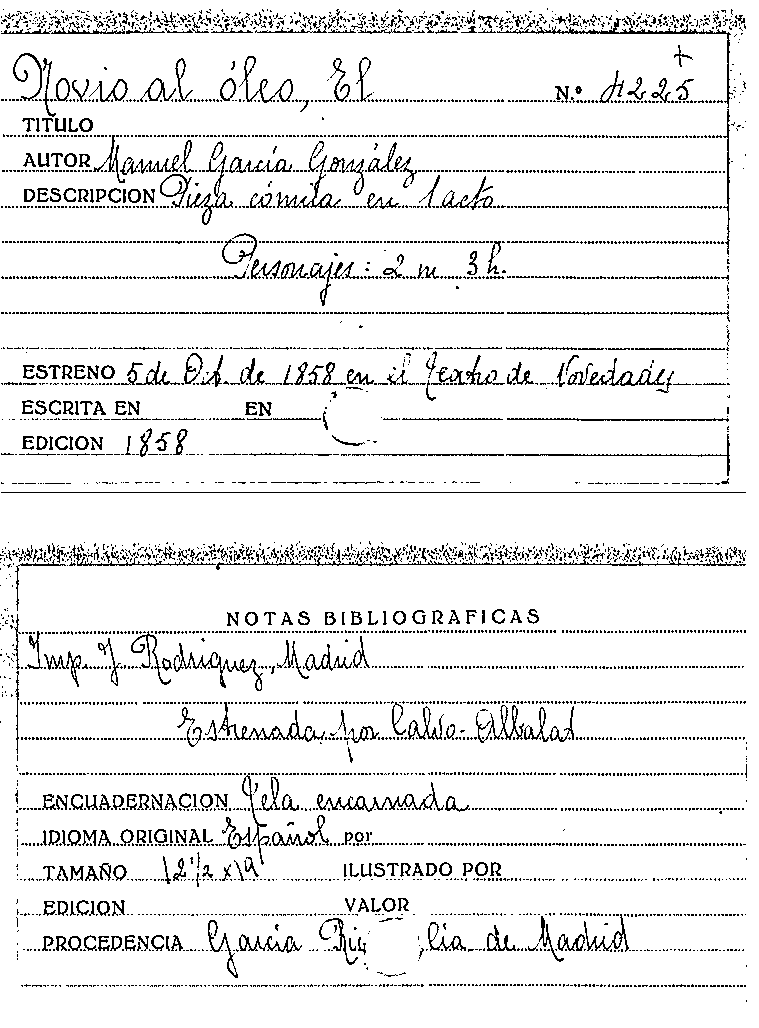 Novio al óleo, El
N.º 4225
TITULO
AUTOR Manuel García González
DESCRIPCION Pieza cómica en 1 acto
Personajes: 2 m 3 h.
ESTRENO 5 de Oct. de 1858 en el Teatro de Novedades
ESCRITA EN EN
EDICION 1858
NOTAS BIBLIOGRAFICAS
Imp. J. Rodriguez, Madrid
Estrenada por Calvo-Albalat
ENCUADERNACION Tela encarnada
IDIOMA ORIGINAL Español por
TAMAÑO 12 1/2 x 19
ILUSTRADO POR
EDICION VALOR
PROCEDENCIA García de Madrid